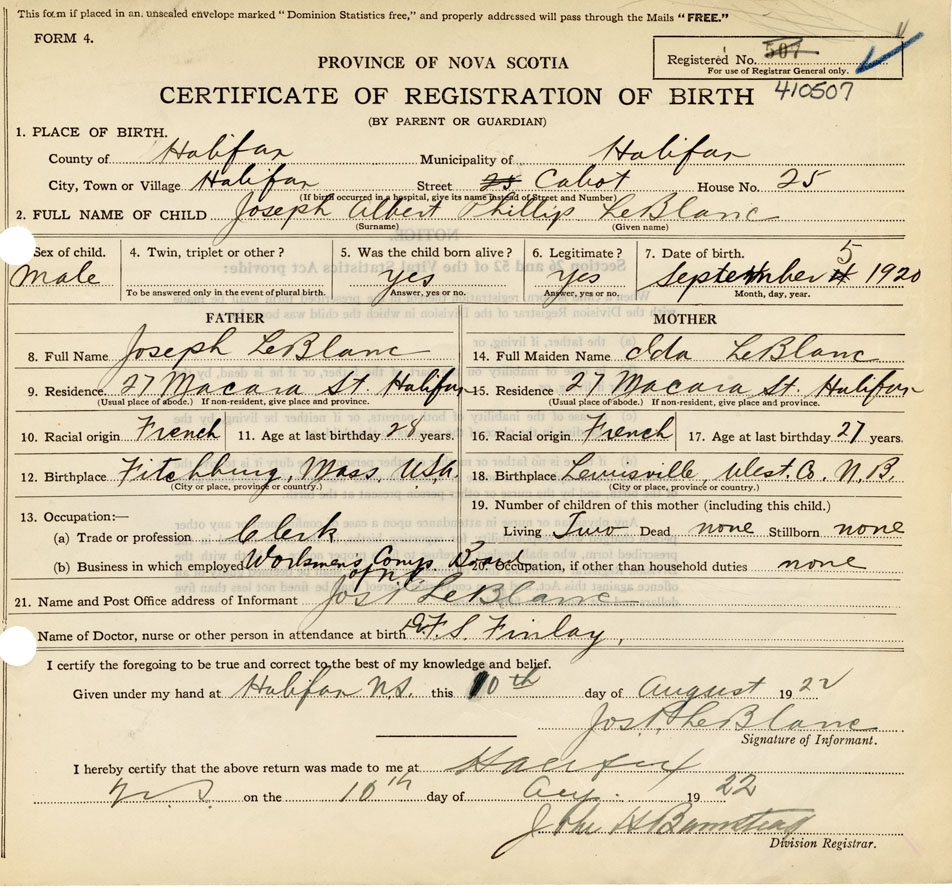 This form if placed in an unsealed envelope marked "Dominion Statistics free," and properly addressed will pass through the Mails "FREE."
FORM 4.
Registered No. 507
For use of Registrar General only.
410507
PROVINCE OF NOVA SCOTIA
CERTIFICATE OF REGISTRATION OF BIRTH
(BY PARENT OR GUARDIAN)
1. PLACE OF BIRTH.
County of Halifax Municipality of Halifax
City, Town or Village Halifax Street 25 Cabot House No. 25
(If birth occurred in a hospital, give its name instead of Street and Number)
2. FULL NAME OF CHILD Joseph Albert Phillip LeBlanc
(Surname) (Given name)
Sex of child. 4. Twin, triplet or other? 5. Was the child born alive? 6. Legitimate? 7. Date of birth.
Male Yes Yes September 5 1920
To be answered only in the event of plural birth. Answer, yes or no. Answer, yes or no. Month, day, year.
FATHER MOTHER
8. Full Name Joseph LeBlanc 14. Full Maiden Name Ida LeBlanc
9. Residence 27 Macara St. Halifax 15. Residence 27 Macara St. Halifax
(Usual place of abode.) If non-resident, give place and province. (Usual place of abode.) If non-resident, give place and province.
10. Racial origin French 11. Age at last birthday 28 years. 16. Racial origin French 17. Age at last birthday 27 years.
12. Birthplace Fitchburg, Mass. USA. 18. Birthplace Lewisville, West. Co. N.B.
(City or place, province or country.) (City or place, province or country.)
13. Occupation:— 19. Number of children of mother (including this child.)
(a) Trade or profession Clerk Living Two Dead none Stillborn none
(b) Business in which employed Workmens Comp. Board 20. Occupation, if other than household duties none
of N.S.
21. Name and Post Office address of Informant Jos. LeBlanc
Name of Doctor, nurse or other person in attendance at birth Dr. F. S. Finlay,
I certify the foregoing to be true and correct to the best of my knowledge and belief.
Given under my hand at Halifax N.S. this 10th day of August 1922
Jos. LeBlanc
Signature of Informant.
I hereby certify that the above return was made to me at Halifax
N.S. on the 10th day of Aug. 1922
John H Barnstead
Division Registrar.